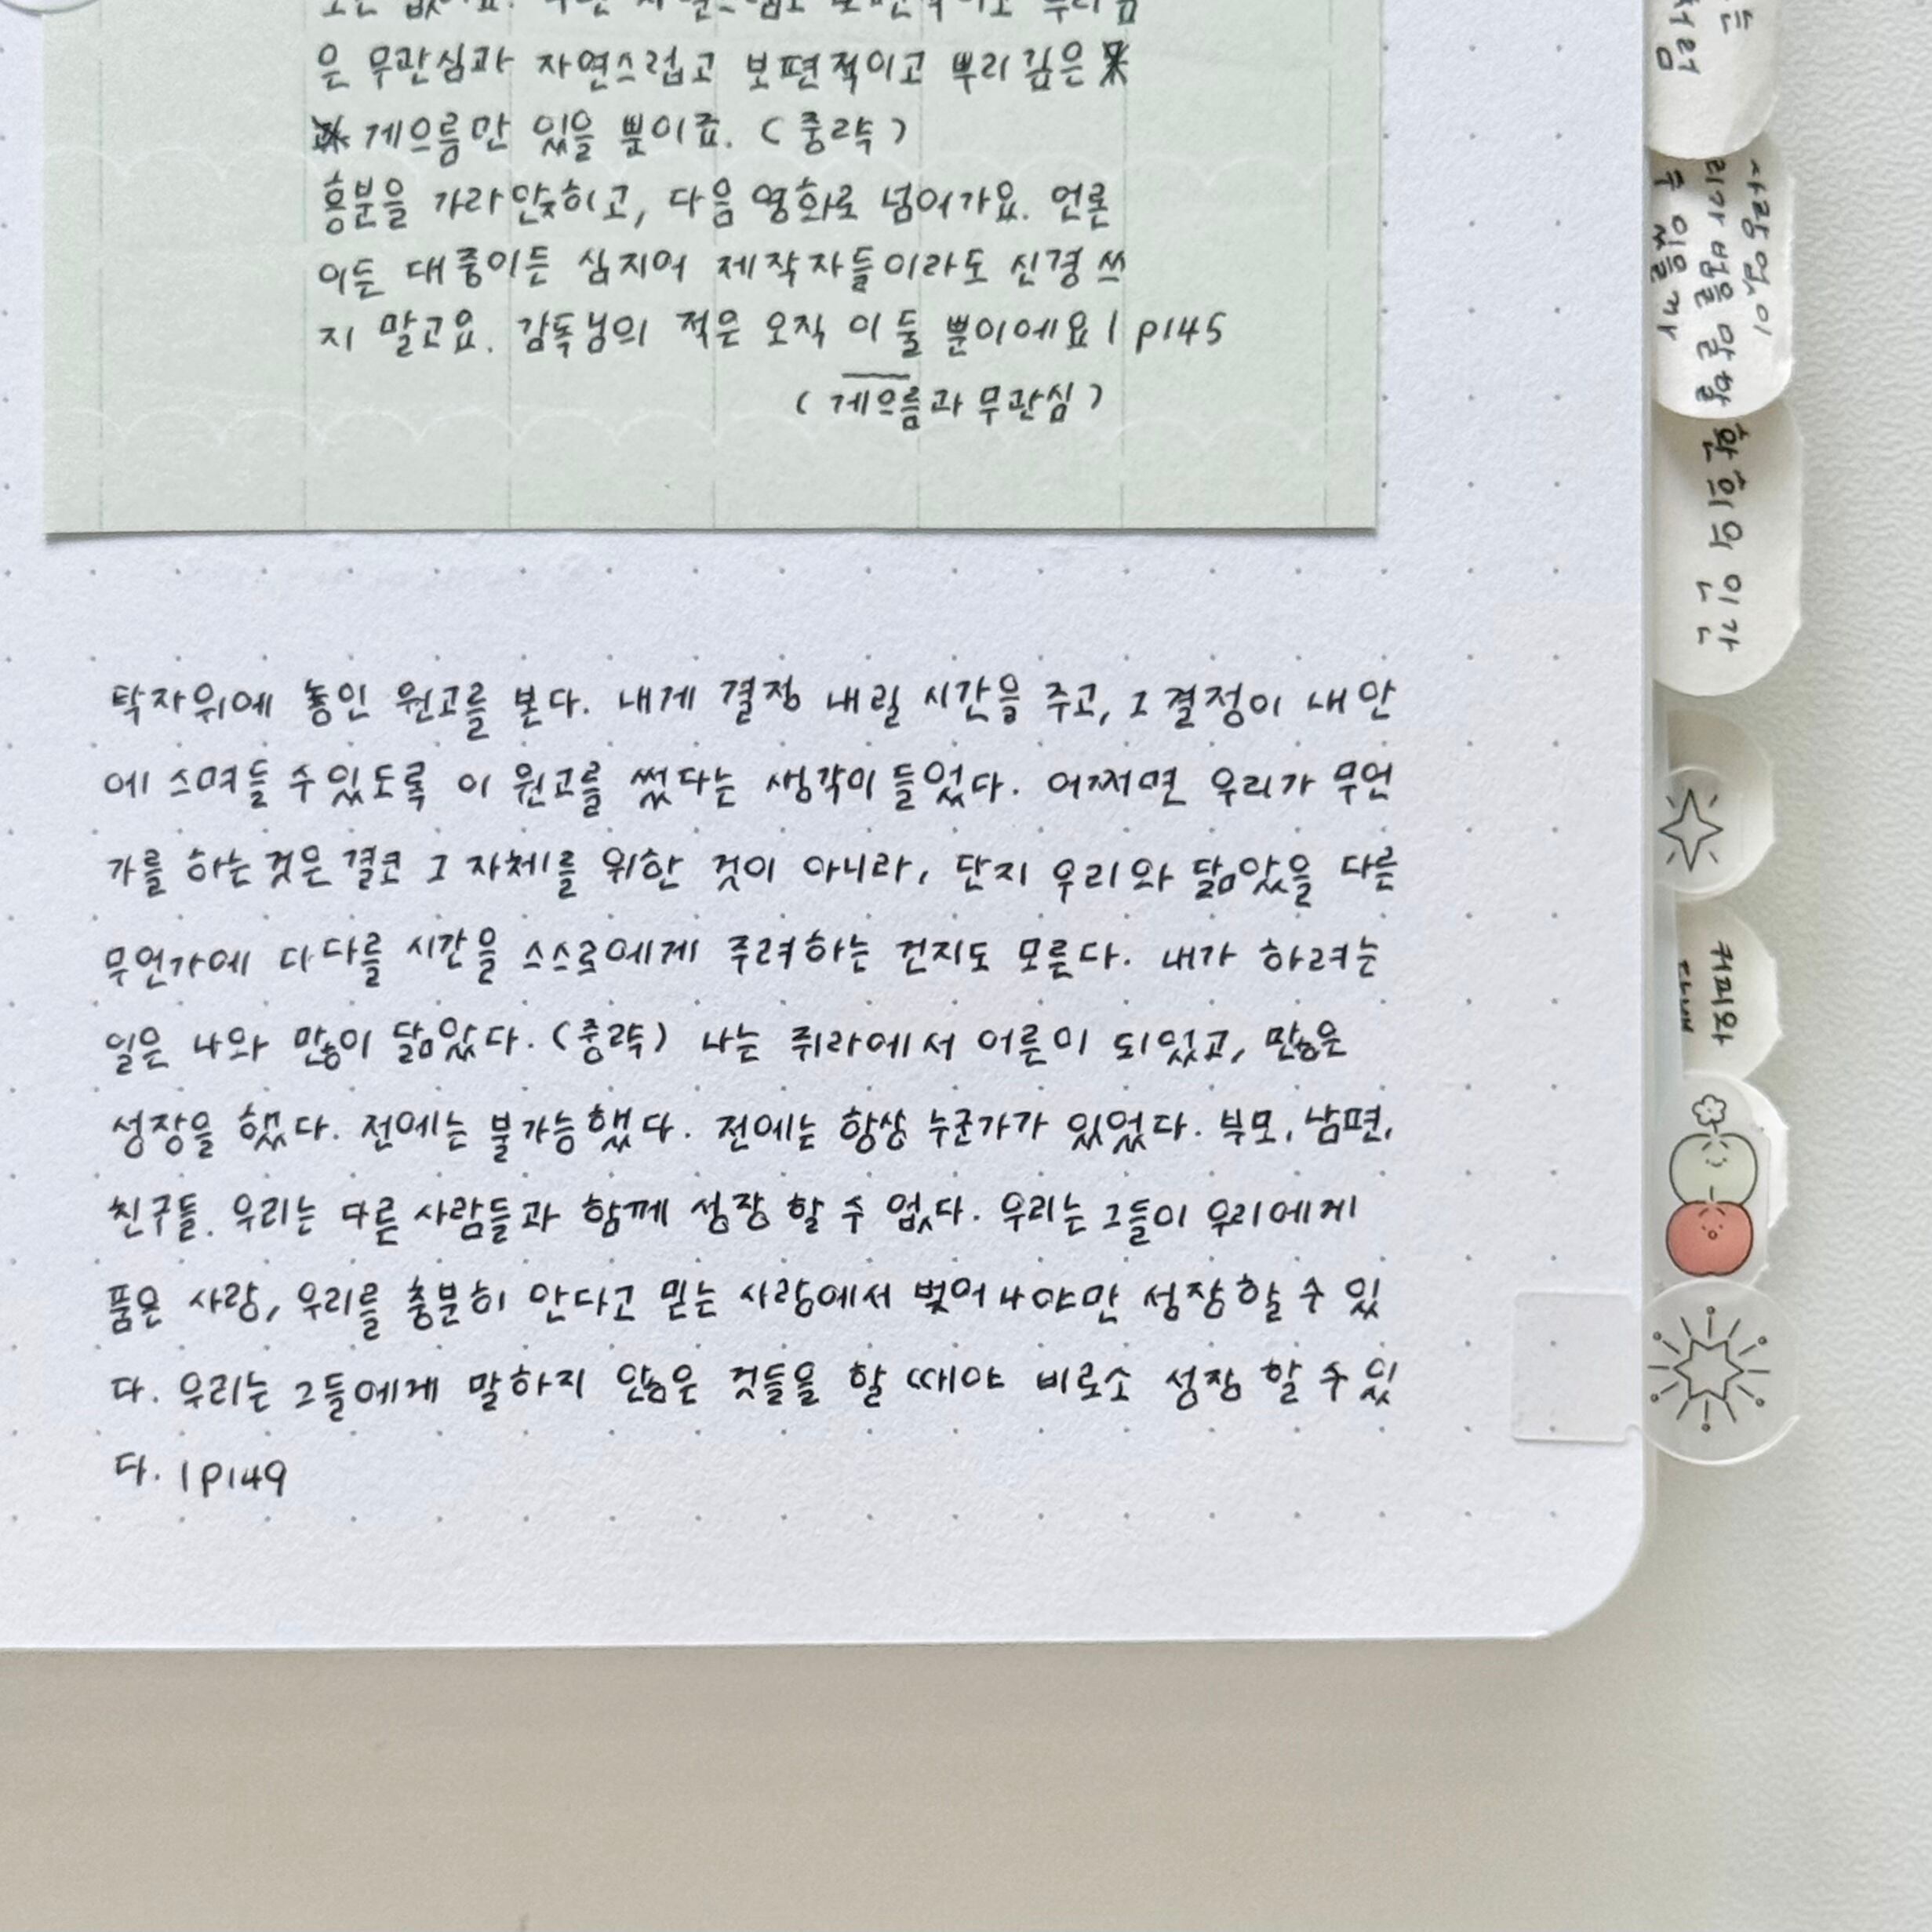 은 무관심과 자연스럽고 보편적이고 뿌리 깊은
게으름만 있을 뿐이죠. (중략)
흥분을 가라앉히고, 다음 영화로 넘어가요. 언론
이든 대중이든 심지어 제작자들이라도 신경 쓰
지 말고요. 감독님의 적은 오직 이 둘 뿐이에요 | p145
(게으름과 무관심)
탁자위에 놓인 원고를 본다. 내게 결정 내릴 시간을 주고, 그 결정이 내 안
에 스며들 수 있도록 이 원고를 썼다는 생각이 들었다. 어쩌면 우리가 무언
가를 하는 것은 결코 그 자체를 위한 것이 아니라, 단지 우리와 닮았을 다른
무언가에 다다를 시간을 스스로에게 주려하는 건지도 모른다. 내가 하려는
일은 나와 많이 닮았다. (중략) 나는 쥐라에서 어른이 되었고, 많은
성장을 했다. 전에는 불가능했다. 전에는 항상 누군가가 있었다. 부모, 남편,
친구들. 우리는 다른 사람들과 함께 성장 할 수 없다. 우리는 그들이 우리에게
품은 사랑, 우리를 충분히 안다고 믿는 사랑에서 벗어나야만 성장할 수 있
다. 우리는 그들에게 말하지 않은 것들을 할 때야 비로소 성장 할 수 있
다. | p149
사랑 없이
우리가 법을 말할
수 있을까
환희의 인간
커피와
담배